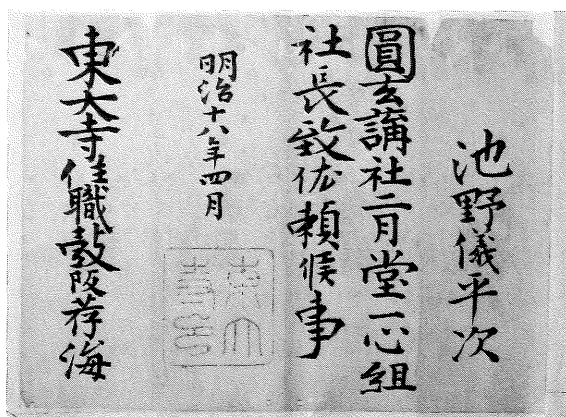 池野儀平次
圓玄講社二月堂一心組
社長致依頼候事
明治十八年四月
東大寺住職鼓阪荐海